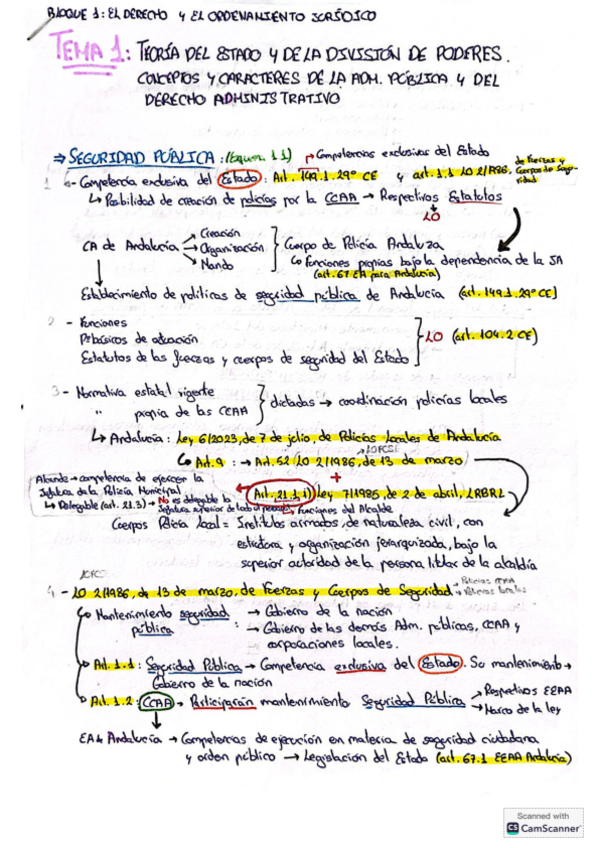 BLOQUE 1: EL DERECHO Y EL ORDENAMIENTO JURÍDICO
TEMA 1: TEORÍA DEL ESTADO Y DE LA DIVISIÓN DE PODERES.
CONCEPTOS Y CARACTERES DE LA ADM. PÚBLICA Y DEL
DERECHO ADMINISTRATIVO
⇒ SEGURIDAD PÚBLICA: (Esquema 1.1) → Competencias exclusivas del Estado
1 - Competencia exclusiva del Estado: Art. 149.1.29º CE y art. 1.1 LO 2/1986, de Fuerzas y Cuerpos de Seguridad
↳ Posibilidad de creación de policías por la CCAA → Respectivos Estatutos
↓ LO
CA de Andalucía → Creación → Organización → Mando } Cuerpo de Policía Andaluza
↳ Funciones propias bajo la dependencia de la JA
(art. 67 EA para Andalucía)
Establecimiento de políticas de seguridad pública de Andalucía (art. 149.1.29º CE)
2 - Funciones
P. básicos de actuación
Estatutos de las fuerzas y cuerpos de seguridad del Estado
LO (art. 104.2 CE)
3 - Normativa estatal vigente
" propia de las CCAA } dictadas → coordinación policías locales
↳ Andalucía: Ley 6/2023, de 7 de julio, de Policías Locales de Andalucía
LOFCSE
↳ Art. 9: → Art. 52 LO 2/1986, de 13 de marzo
+
Alcalde → competencia de ejercer la
Jefatura de la Policía Municipal
↳ Delegable (art. 21.3) → No es delegable la Jefatura superior de todo el personal
Art. 21.1.i) Ley 7/1985, de 2 de abril, LRBRL
→ Funciones del Alcalde
Cuerpos Policía Local = Institutos armados, de naturaleza civil, con
estructura y organización jerarquizada, bajo la
superior autoridad de la persona titular de la alcaldía
LOFCSE
4 - LO 2/1986, de 13 de marzo, de Fuerzas y Cuerpos de Seguridad → Policías locales
↳ Mantenimiento seguridad pública: → Gobierno de la nación
→ Gobierno de las demás Adm. públicas, CCAA y
corporaciones locales.
Art. 1.1: Seguridad Pública → Competencia exclusiva del Estado. Su mantenimiento →
Gobierno de la nación
Art. 1.2: CCAA → Participarán mantenimiento Seguridad Pública → Respectivos EEAA
→ Marco de la ley
EA de Andalucía → Competencias de ejecución en materia de seguridad ciudadana
y orden público → Legislación del Estado (art. 67.1 EEAA Andalucía)
Scanned with
CS CamScanner